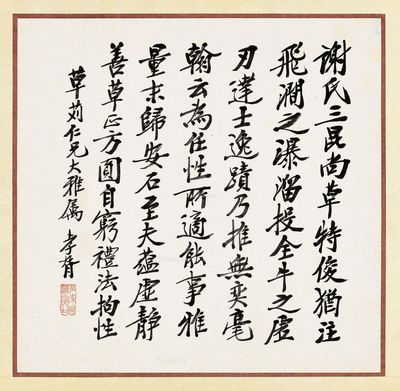 謝氏三昆尚草特俊猶注
飛澗之瀑溜投全牛之虛
刃達士逸蹟乃推無奕毫
翰云為任性所適能事雅
量末歸安石至夫蘊虛靜
善草正方圓自窮禮法拘性
草苅仁兄大雅屬 孝胥